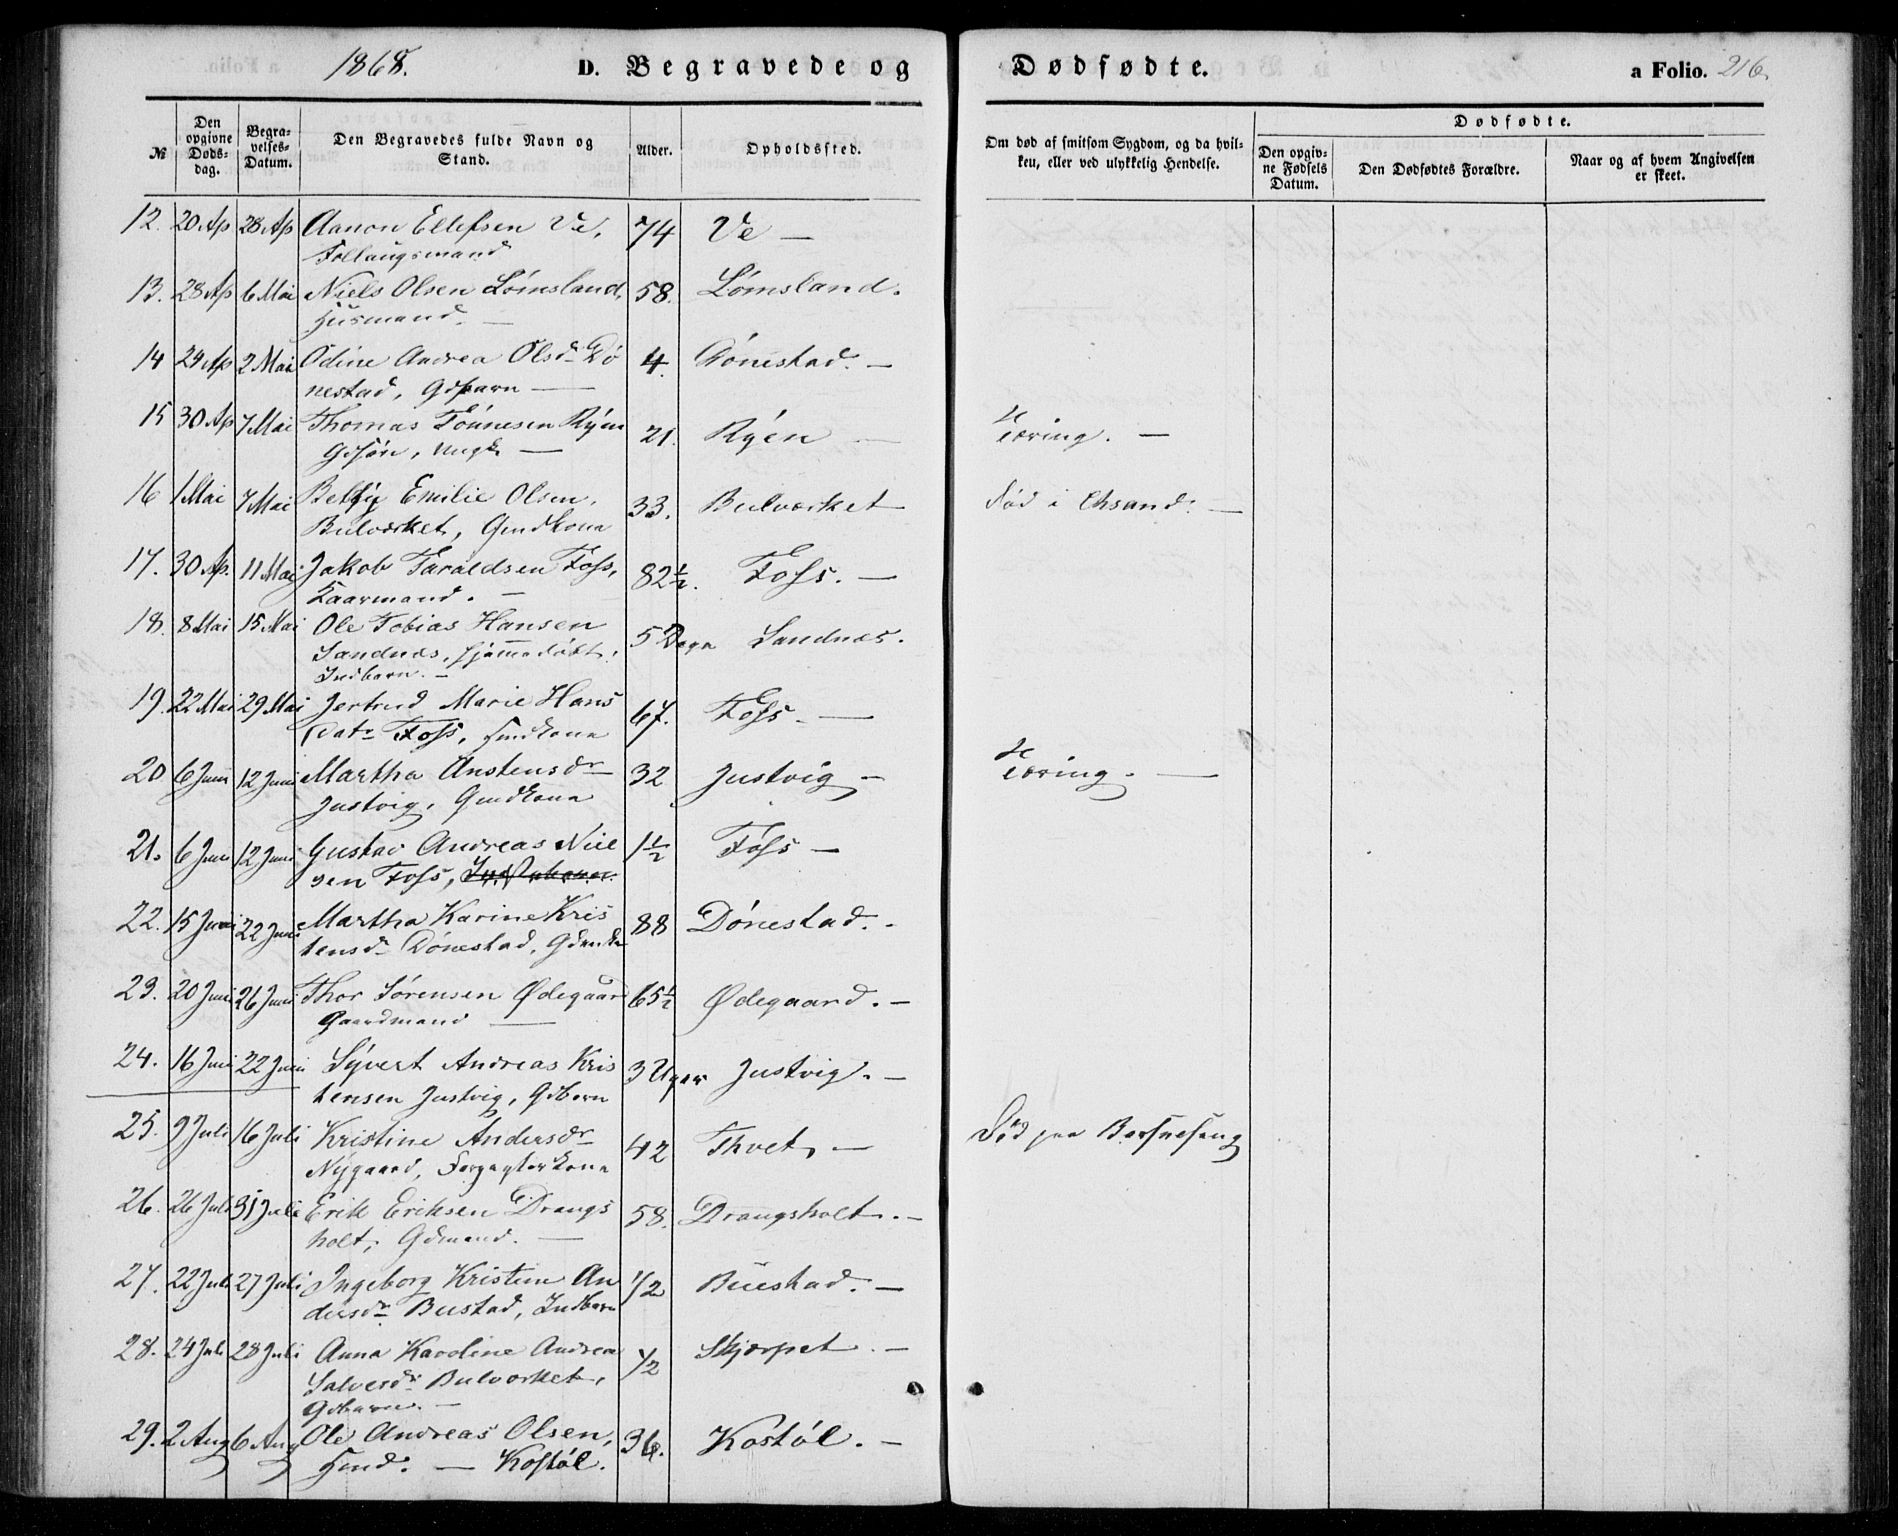 1868. D. Begravede og Dødfødte. a Folio. 216.
№ Den opgivne Døds-dag. Begra-velses-Datum. Den Begravedes fulde Navn og Stand. Alder. Opholdssted. Om død af smitsom Sygdom, og da hvil-ken, eller ved ulykkelig Hendelse. Dødfødte. Den opgiv-ne Fødsels Datum. Den Dødfødtes Forældre. Naar og af hvem Angivelsen er skeet.
12. 20 Ap 28 Ap Aanon Ellefsen Ve, 74 Ve —
Follaugsmand
13. 28 Ap 6 Mai Niels Olsen Lømsland, 58. Lømsland.
Husmand. —
14 24 Ap 2 Mai Odine Andrea Olsdr Dø 4. Dønestad. —
nestad, Gdbarn —
15 30 Ap 7 Mai Thomas Tønnesen Ryen 21. Ryen — Tæring. —
Gdsøn, Ungk. —
16 1 Mai 7 Mai Betsy Emilie Olsen, 33. Bulværket død i Chsand. —
Bulværket, Gmdkona
17. 30 Ap. 11 Mai Jakob Taraldsen Foss, 82½. Foss. —
Kaarmand. —
18. 8 Mai 15 Mai Ole Tobias Hansen 5 Døgn Sandnæs.
Sandnæs, hjemmedøbt.
Indbarn. —
19. 22 Mai 29 Mai Jertrud Marie Hans 67. Foss. —
Datr Foss, Hmdkona
20 6 Juni 12 Juni Martha Anstensdr 32 Justvig — Tæring. —
Justvig, Gmdkona
21. 6 Juni 12 Juni Gustav Andreas Niel 1½ Foss —
sen Foss,
22. 15 Juni 22 Juni Martha Karine Kris 88 Dønestad. —
tensdr Dønestad, Gdenke
23. 20 Juni 26 Juni Thor Sørensen Ødegaard 65½ Ødegaard. —
Gaardmand —
24. 16 Juni 22 Juni Syvert Andreas Kris 3 Uger Justvig. —
tensen Justvig, Gdbarn
25. 9 Juli 16 Juli Kristine Andersdr 42 Thvet, — død paa Barselseng
Nygaard, Forpagterkona
26. 26 Juli 31 Juli Erik Eriksen Drangs 58. Drangsholt. —
holt, Gdmand. —
27. 22 Juli 27 Juli Ingeborg Kristine An 1/2 Buestad. —
dersdr Bustad, Indbarn
28. 24 Juli 28 Juli Anna Karoline Andrea 1/2 Skjærpet. —
Salvesdr Bulværket,
Gdbarn. —
29. 2 Aug 6 Aug Ole Andreas Olsen, 36. Kostøl. —
Hmd. — Kostøl.